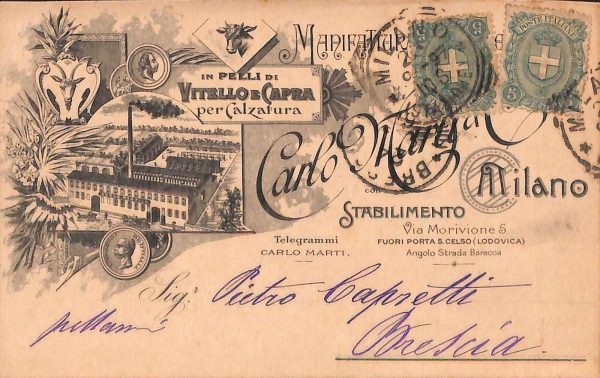 MANIFATTUR
IN PELLI DI
VITELLO E CAPRA
per Calzatura
Carlo Marti & C
CON
STABILIMENTO
Milano
Via Morivione 5
FUORI PORTA S. CELSO (LODOVICA)
Angolo Strada Baracca
Telegrammi
CARLO MARTI.
POSTE ITALIANE
5
5
MILANO
Sigr. Pietro Capretti
pellami
Brescia.